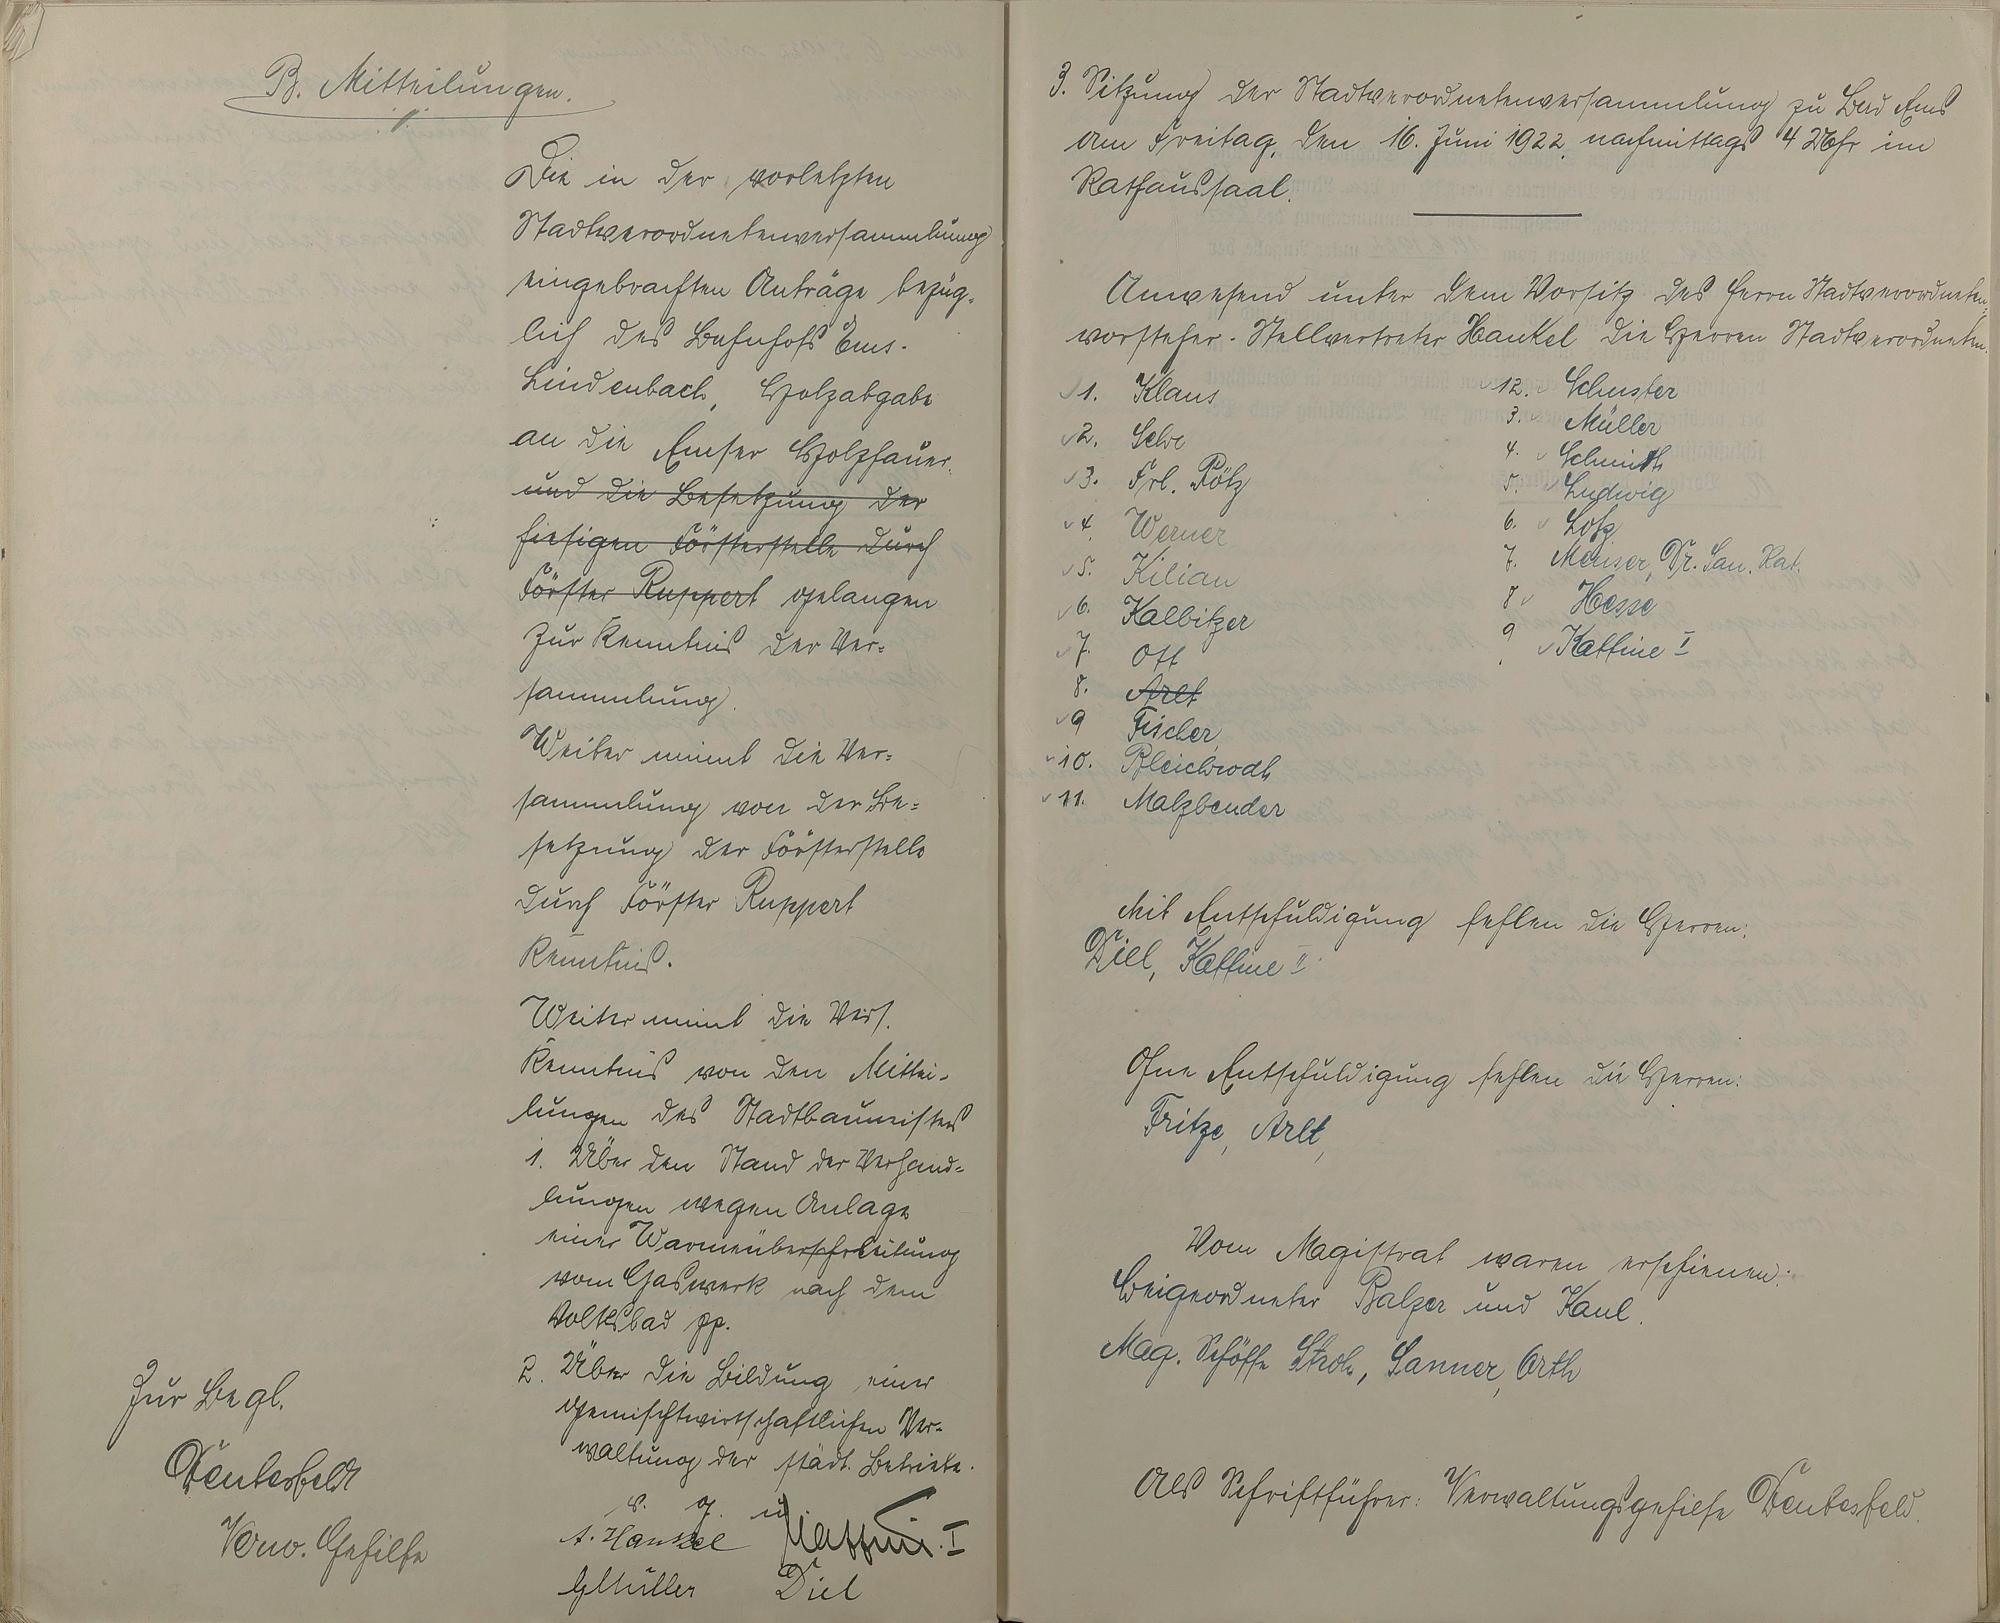 B. Mitteilungen.
Die in der vorletzten
Stadtverordnetenversammlung
eingebrachten Anträge bezüg-
lich des Bahnhofs Ems-
Lindenbach, Holzabgabe
an die Emser Holzhauer
und die Besetzung der
hiesigen Försterstelle durch
Förster Ruppert gelangen
zur Kenntnis der Ver-
sammlung.
Weiter nimmt die Ver-
sammlung von der Be-
setzung der Försterstelle
durch Förster Ruppert
Kenntnis.
Weiter nimmt die Vers.
Kenntnis von den Mittei-
lungen des Stadtbaumeisters
1. Über den Stand der Verhand-
lungen wegen Anlage
einer Warmeüberleitung
vom Gaswerk nach dem
Volksbad pp.
2. Über die Bildung einer
gemischtwirtschaftlichen Ver-
waltung der städt. Betriebe.
v. g. u.
A. Hankel Kaffine I
GMüller Diel
Zur Begl.
Deutesfeld
Verw. Gehilfe
3. Sitzung der Stadtverordnetenversammlung zu Bad Ems
am Freitag, den 16. Juni 1922, nachmittags 4 Uhr im
Rathaussaal.
Anwesend unter dem Vorsitz des Herrn Stadtverordneten-
vorsteher-Stellvertreter Hankel die Herren Stadtverordneten.
1. Klaus
2. Selve
3. Frl. Fötz
4. Werner
5. Kilian
6. Kalbitzer
7. Ott
8. Arlt
9 Fischer
10. Bleichrodt
11. Malzbender
12. Schuster
3. Müller
4. Schmidt
5. Ludwig
6. Lotz
7. Meuser, Dr. San. Rat.
8 Hesse
9 Kaffine I
Mit Entschuldigung fehlen die Herren:
Diel, Kaffine II
Ohne Entschuldigung fehlen die Herren:
Fritze, Arlt,
Vom Magistrat waren erschienen:
Beigeordneter Balzer und Kaul.
Mag. Schöffe Stroh, Sanner, Orth
Als Schriftführer: Verwaltungsgehilfe Deutesfeld.